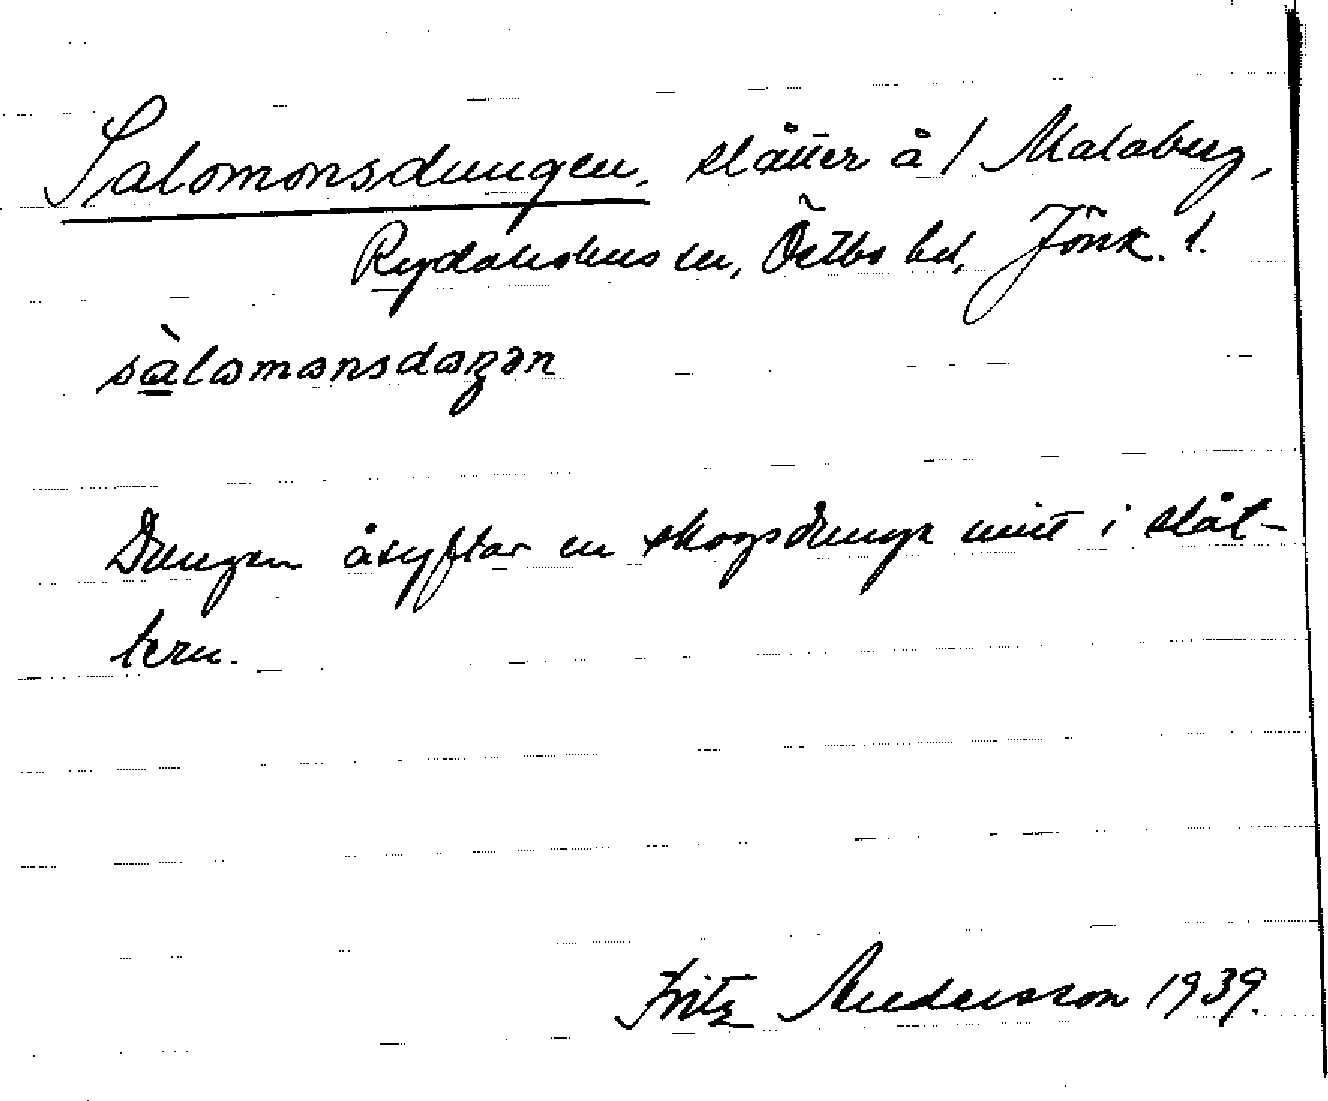 Salomonsdungen, slåtter å / Malaberg,
Rydaholms sn, Östbo hd, Jönk. l.
sàlomonsdoŋən
Dungen åsyftar en skogsdunge mitt i slåt-
tern.
Fritz Andersson 1939.